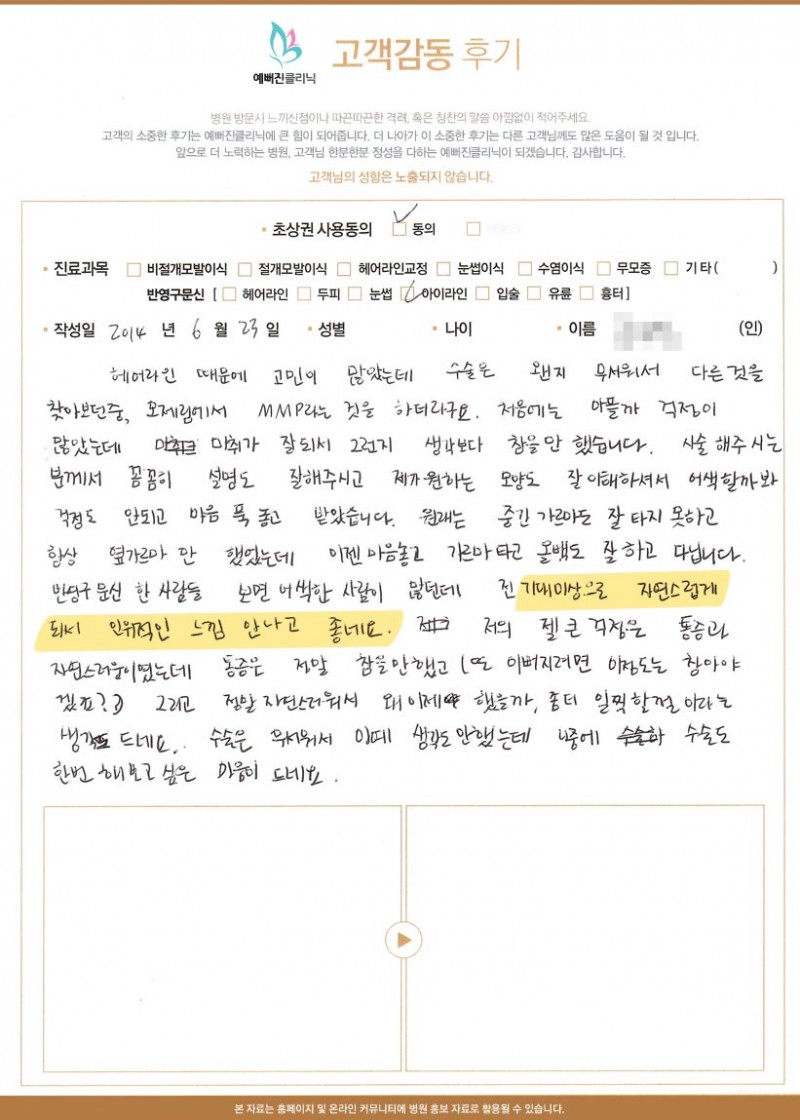 예뻐진클리닉
고객감동 후기
병원 방문시 느끼신점이나 따끈따끈한 격려, 혹은 칭찬의 말씀 아낌없이 적어주세요.
고객의 소중한 후기는 예뻐진클리닉에 큰 힘이 되어줍니다. 더 나아가 이 소중한 후기는 다른 고객님께도 많은 도움이 될 것 입니다.
앞으로 더 노력하는 병원, 고객님 한분한분 정성을 다하는 예뻐진클리닉이 되겠습니다. 감사합니다.
고객님의 성함은 노출되지 않습니다.
• 초상권 사용동의 동의
• 진료과목 비절개모발이식 절개모발이식 헤어라인교정 눈썹이식 수염이식 무모증 기타( )
반영구문신 [ 헤어라인 두피 눈썹 아이라인 입술 유륜 흉터 ]
• 작성일 2014 년 6 월 23 일 • 성별 • 나이 • 이름 (인)
헤어라인 때문에 고민이 많았는데 수술은 왠지 무서워서 다른것을
찾아보던중, 모제림에서 MMP라는 것을 하더라구요. 처음에는 아플까 걱정이
많았는데 마취가 잘되서 그런지 생각보다 참을만 했습니다. 시술 해주시는
분께서 꼼꼼히 설명도 잘해주시고 제가원하는 모양도 잘 이해하셔서 어색할까봐
걱정도 안되고 마음 푹 놓고 받았습니다. 원래는 중간 가르마도 잘 타지 못하고
항상 옆가르마 만 했었는데 이젠 마음놓고 가르마 타고 올백도 잘 하고 다닙니다.
반영구 문신 한 사람들 보면 어색한 사람이 많던데 전 기대이상으로 자연스럽게
되서 인위적인 느낌 안나고 좋네요. 저의 젤 큰 걱정은 통증과
자연스러움이였는데 통증은 정말 참을만했고 (또 이뻐지려면 이정도는 참아야
겠죠?) 그리고 정말 자연스러워서 왜 이제야 했을까, 좀더 일찍할껄 이라는
생각도 드네요. 수술은 무서워서 이때 생각도 안했는데 나중에 수술도
한번 해보고 싶은 마음이 드네요.
본 자료는 홈페이지 및 온라인 커뮤니티에 병원 홍보 자료로 활용될 수 있습니다.